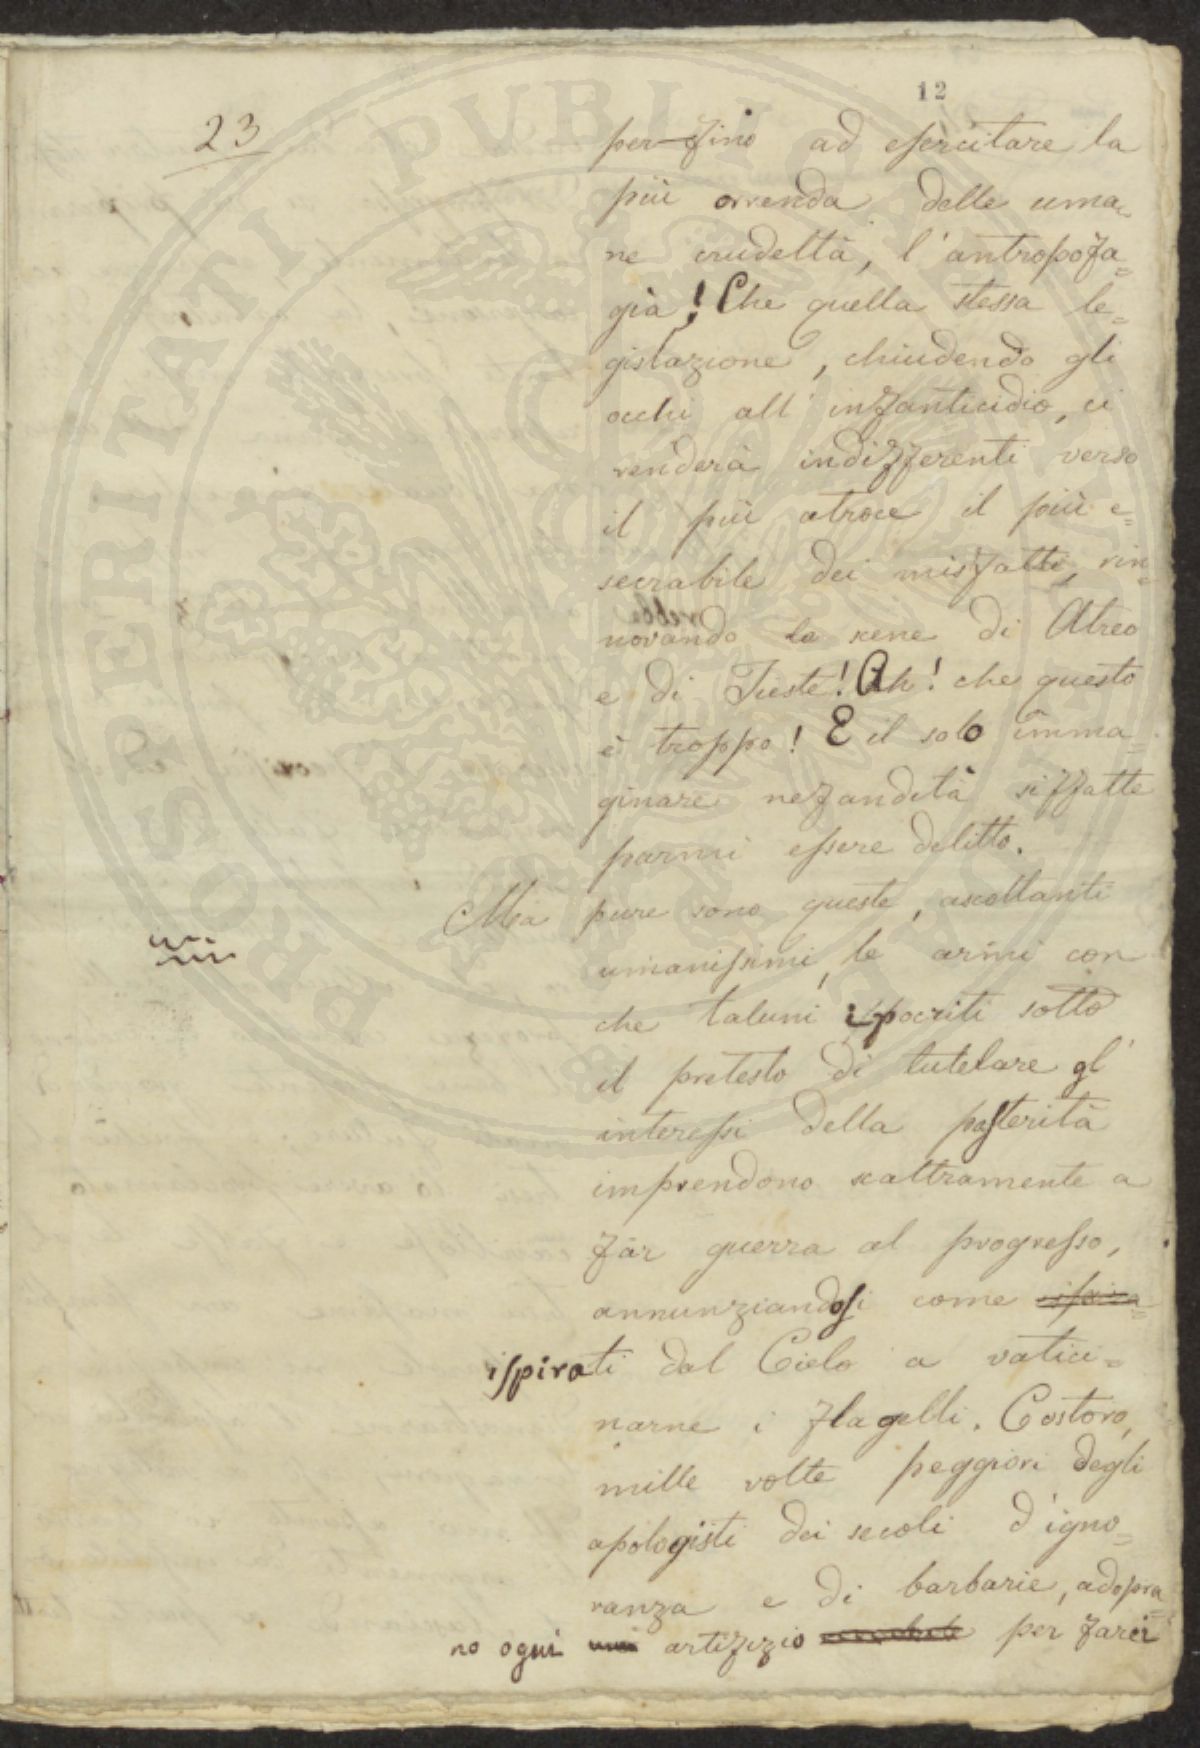 12
23
perfino ad esercitare la
più orrenda delle uma-
ne crudeltà, l'antropofa=
gia! Che quella stessa le=
gislazione, chiudendo gli
occhi all'infanticidio, ci
renderà indifferenti verso
il più atroce il più e=
secrabile dei misfatti, rin=
novando le scene di Atreo
e di Tieste! Ah! che questo
è troppo! E il solo imma=
ginare nefandità siffatte
parmi essere delitto.
Ma pure sono queste, ascoltanti
umanissimi, le armi con
che taluni ipocriti sotto
il pretesto di tutelare gl'
interessi della posterità
imprendono scaltramente a
far guerra al progresso,
annunziandosi come
ispirati dal Cielo a vatici=
narne i flagelli. Costoro,
mille volte peggiori degli
apologisti dei secoli d'igno=
ranza e di barbarie, adopra=
no ogni artifizio per farci
PROSPERITATI PUBLICAE